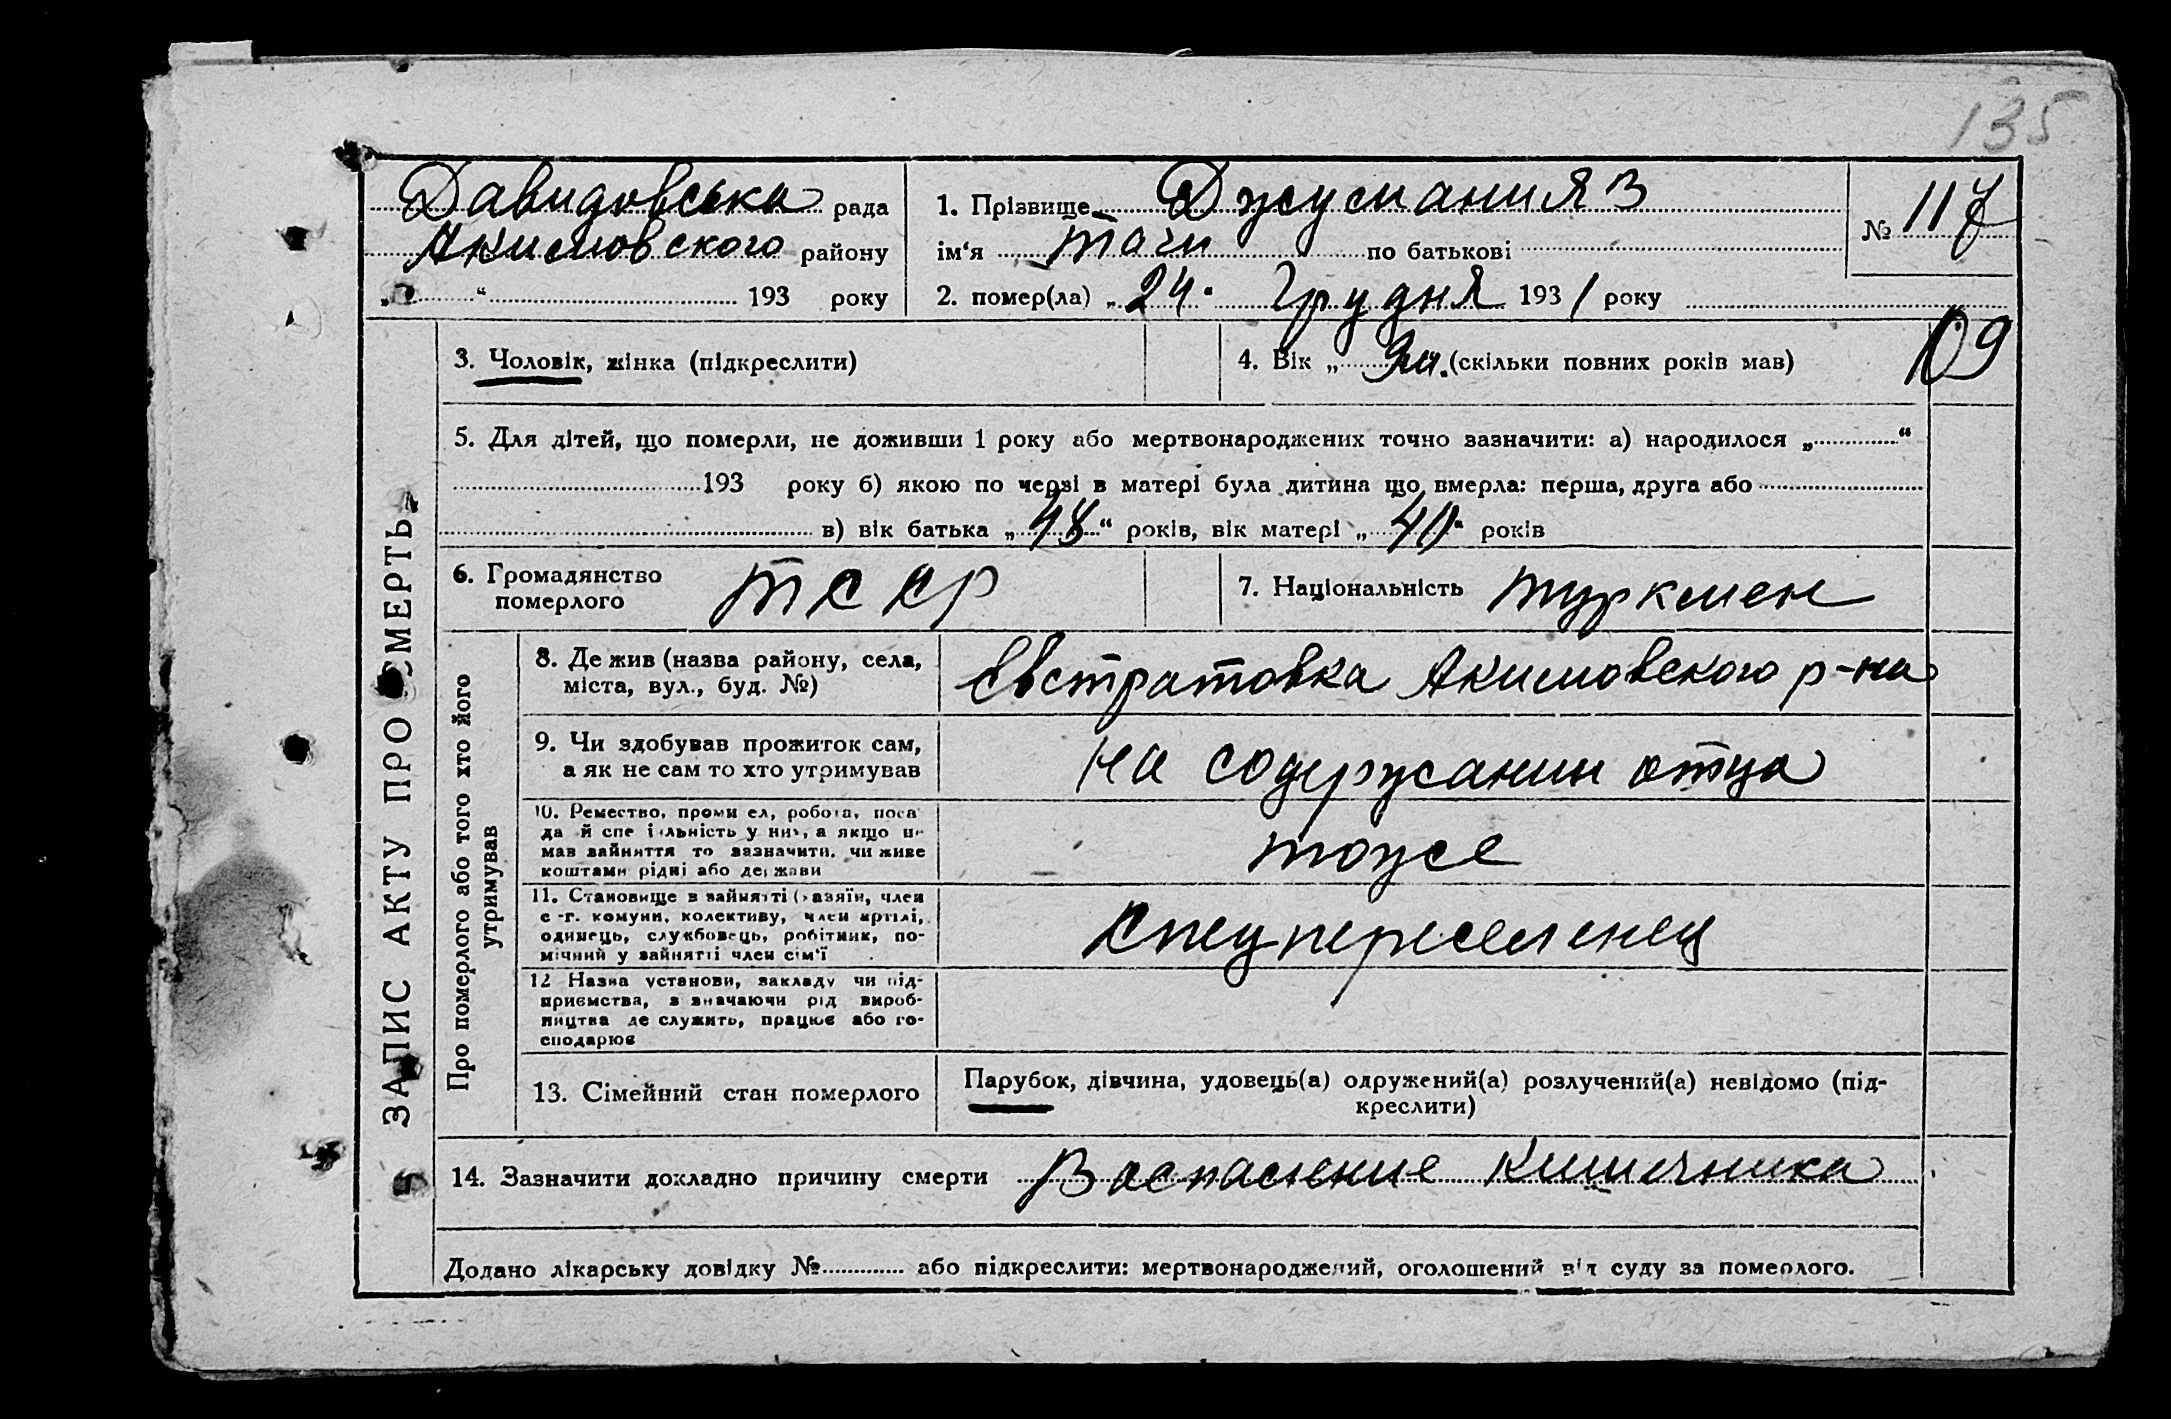 135
Давидовська рада
Акимовского району
„ “ 193 року
1. Прізвище Джуманияз
ім‘я Тачи по батькові
2. помер(ла) „24" Грудня 1931 року
№ 117
109
ЗАПИС АКТУ ПРО СМЕРТЬ
3. Чоловік, жінка (підкреслити)
4. Вік „ (скільки повних років мав)
5. Для дітей, що померли, не доживши 1 року або мертвонароджених точно зазначити: а) народилося „ “
193 року б) якою по черзі в матері була дитина що вмерла: перша, друга або
в) вік батька „48“ років, вік матері „40" років
6. Громадянство
померлого
ТССР
7. Національність туркмен
Про померлого або того хто його
утримував
8. Де жив (назва району, села,
міста, вул., буд. №)
Евстратовка Акимовского р-на
9. Чи здобував прожиток сам,
а як не сам то хто утримував
на содержании отца
10. Ремество, промисел, робота, поса
да й спеціяльність у них, а якщо не
мав зайняття то зазначити, чи живе
коштами рідні або держави
тоже
11. Становище в зайнятті (хазяїн, член
с.-г. комуни, колективу, член артілі,
одинець, службовець, робітник, по-
мічний у зайнятті член сім'ї
спецпереселенец
12 Назва установи, закладу чи під-
приємства, зазначаючи рід вироб-
ництва де служить, працює або го-
сподарює
13. Сімейний стан померлого
Парубок, дівчина, удовець(а) одружений(а) розлучений(а) невідомо (під-
креслити)
14. Зазначити докладно причину смерти Воспаление кишечника
Додано лікарську довідку № або підкреслити: мертвонароджений, оголошений від суду за померлого.